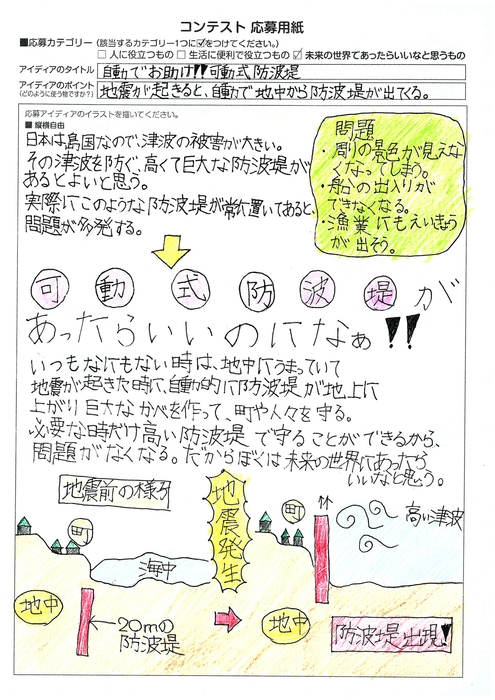 コンテスト 応募用紙
■応募カテゴリー (該当するカテゴリー1つに☑をつけてください。)
□ 人に役立つもの □ 生活に便利で役立つもの ☑ 未来の世界であったらいいなと思うもの
アイディアのタイトル 自動でお助け!!可動式防波堤
アイディアのポイント
(どのように使う物ですか?) 地震が起きると、自動で地中から防波堤が出てくる。
応募アイディアのイラストを描いてください。
■ 縦横自由
日本は島国なので、津波の被害が大きい。
その津波を防ぐ、高くて巨大な防波堤が
あるとよいと思う。
実際にこのような防波堤が常に置いてあると、
問題が多発する。
問題
・周りの景色が見えな
くなってしまう。
・船の出入りが
できなくなる。
・漁業にもえいきょう
が出そう。
可動式防波堤が
あったらいいのになぁ!!
いつもなにもない時は、地中にうまっていて
地震が起きた時に、自動的に防波堤が地上に
上がり巨大なかべを作って、町や人々を守る。
必要な時だけ高い防波堤で守ることができるから、
問題がなくなる。だからぼくは未来の世界にあったら
いいなと思う。
地震前の様子
町
海中
地中
20mの
防波堤
地震発生
町
高い津波
地中
防波堤出現!